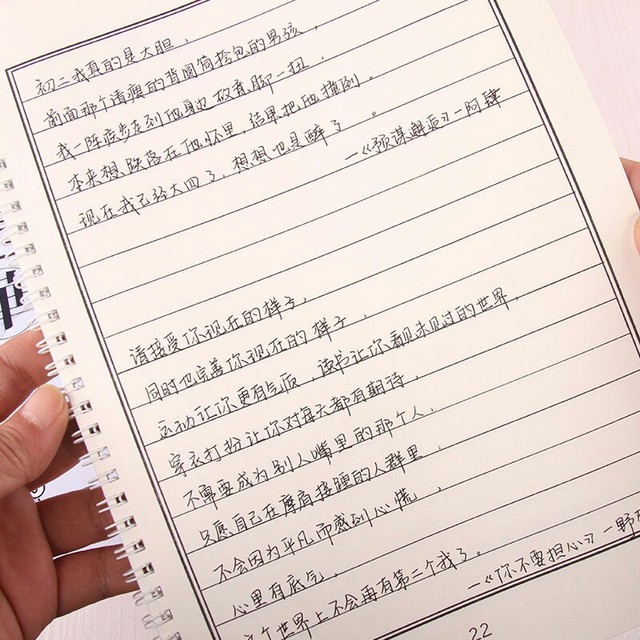 初三我真的是大胆，
前面那个清瘦的背圆筒挎包的男孩，
我一阵疾步走到他身边 故意脚一扭，
本来想跌落在他怀里，结果把他撞倒。
现在我已经大四了，想想也是醉了。
—《预谋邂逅》—阿肆
请接受你现在的样子，
同时也完善你现在的样子，
运动让你更有气质，读书让你看见未见过的世界，
穿衣打扮让你对每天都有期待，
不需要成为别人嘴里的那个人，
只愿自己在摩肩接踵的人群里，
不会因为平凡而感到心慌，
心里有底气，
这个世界上不会再有第二个我了。
—《你不要担心》—野
22